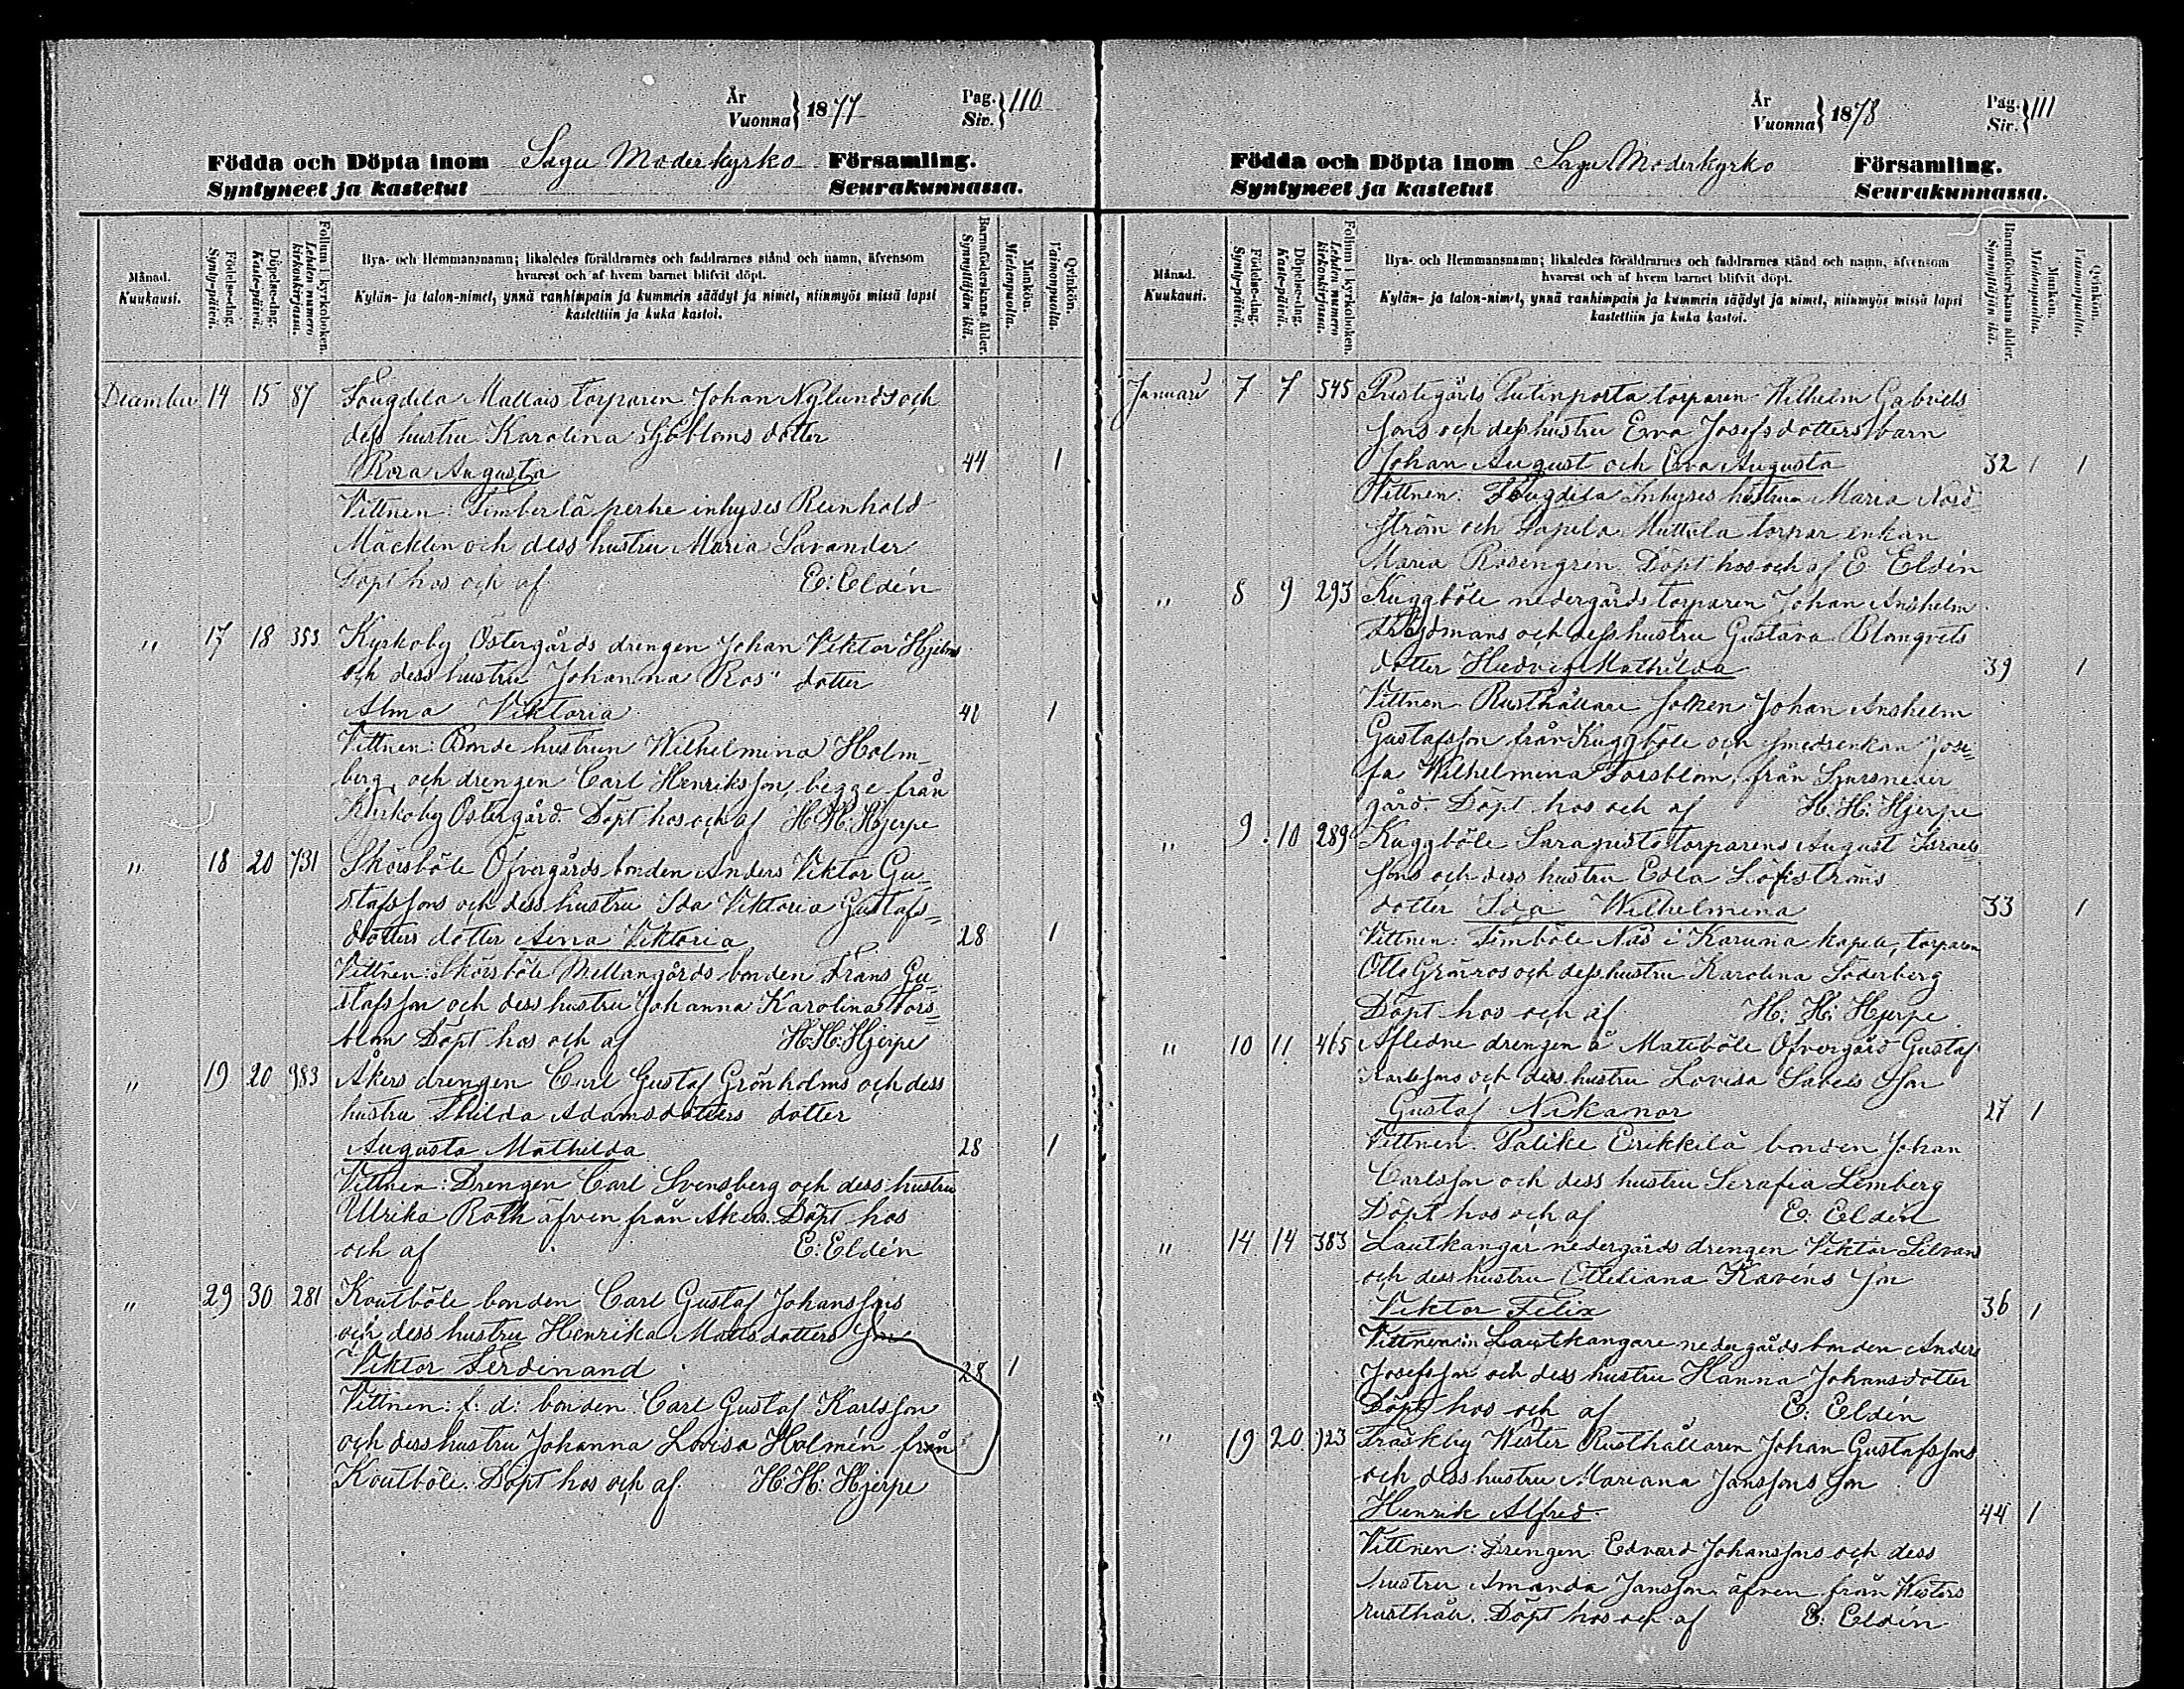 År
Vuonna } 1877
Pag.
Siv. } 110
Födda och Döpta inom Sagu Moderkyrko Församling.
Syntyneet ja kastetut Seurakunnassa.
Månad.
Kuukausi.
Födelse-dag.
Synty-päivä.
Döpelse-dag.
Kaste-päivä.
Folium i kyrkoboken.
Lehden numero kirkonkirjassa.
Bya- och Hemmansnamn; likaledes föräldrarnes och faddrarnes stånd och namn, äfvensom
hvarest och af hvem barnet blifvit döpt.
Kylän- ja talon-nimet, ynnä vanhimpain ja kummein säädyt ja nimet, niinmyös missä lapsi
kastettiin ja kuka kastoi.
Barnaföderskans ålder.
Synnyttäjän ikä.
Mankön.
Miehenpuolta.
Qvinkön.
Vaimonpuolta.
December 14 15 87 Mattais torparen Johan Nylunds och
dess hustru Karolina Sjöbloms dotter
Rosa Augusta 44 1
Vittnen: Timberlä perhe inhyses Reinhold
Mäcklin och dess hustru Maria Savander
Döpt hos och af E: Eldén
" 17 18 353 Kyrkoby Östergårds drengen Johan Viktor Hjelms
och dess hustru Johanna Ros" dotter
Alma Viktoria 40 1
Vittnen: Bonde hustrun Wilhelmina Holm-
berg, och drengen Carl Henriksson, begge från
Kyrkoby Östergård. Döpt hos och af H: H: Hjerpe
" 18 20 731 Skörsböle Öfvergårds bonden Anders Viktor Gu-
stafssons och dess hustru Ida Viktoria Gustafs-
dotters dotter Aina Viktoria 28 1
Vittnen: Skörsböle Mellangårds bonden Frans Gu-
stafsson och dess hustru Johanna Karolina Fors-
blom Döpt hos och af H: H: Hjerpe
" 19 20 983 Åkers drengen Carl Gustaf Grönholms och dess
hustru Thilda Adamsdotters dotter
Augusta Mathilda 28 1
Vittnen: Drengen Carl Svensberg och dess hustru
Ulrika Roth äfven från Åkers. Döpt hos
och af E: Eldén
" 29 30 281 Koutböle bonden Carl Gustaf Johanssons
och dess hustru Henrika Mattsdotters son
Viktor Ferdinand 28 1
Vittnen: f: d: bonden Carl Gustaf Karlsson
och dess hustru Johanna Lovisa Holmén från
Koutböle. Döpt hos och af H: H: Hjerpe
År
Vuonna } 1878
Pag.
Siv. } 111
Födda och Döpta inom Sagu Moderkyrko Församling.
Syntyneet ja kastetut Seurakunnassa.
Månad.
Kuukausi.
Födelse-dag.
Synty-päivä.
Döpelse-dag.
Kaste-päivä.
Folium i kyrkoboken.
Lehden numero kirkonkirjassa.
Bya- och Hemmansnamn; likaledes föräldrarnes och faddrarnes stånd och namn, äfvensom
hvarest och af hvem barnet blifvit döpt.
Kylän- ja talon-nimet, ynnä vanhimpain ja kummein säädyt ja nimet, niinmyös missä lapsi
kastettiin ja kuka kastoi.
Barnaföderskans ålder.
Synnyttäjän ikä.
Mankön.
Miehenpuolta.
Qvinkön.
Vaimonpuolta.
Januari 7 7 545 Prestegårds Putinporta torparen Wilhelm Gabriels-
sons och dess hustru Eva Josefsdotters barn
Johan August och Eva Augusta 32 1 1
Vittnen: Inhyses hustrun Maria Nord-
ström och Sapila Mattila torpar enkan
Maria Rosengren. Döpt hos och af E. Eldén
" 8 9 293 Kuggböle nedergårds torparen Johan Anshelm
och dess hustru Gustava Blomqvists
dotter Hedvig Mathilda 39 1
Vittnen Rusthållare Johan Anshelm
Gustafsson från Kuggböle och smedsenkan Jose-
fa Wilhelmina Forsblom, från
gård. Döpt hos och af H: H: Hjerpe
" 9 10 289 Kuggböle torparens August Israels-
sons och dess hustru Edla Löfströms
dotter Ida Wilhelmina 33 1
Vittnen: Timböle Näs i Karuna kapell, torparen
Otto Grönros och dess hustru Karolina Söderberg
Döpt hos och af H: H: Hjerpe
" 10 11 465 Aflidne drengen å Mateböle Öfvergård Gustaf
Karlssons och dess hustru Lovisa Savéls son
Gustaf Nikanor 27 1
Vittnen. Palike Erikkilä bonden Johan
Carlsson och dess hustru Serafia Lemberg
Döpt hos och af E: Eldén
" 14 14 383 Lautkangar nedergårds drengen Viktor
och dess hustru Otteliana Kavéns son
Viktor Felix 36 1
Vittnen: Lautkangare nedergårds bonden Anders
Josefsson och dess hustru Hanna Johansdotter
Döpt hos och af E: Eldén
" 19 20 923 Träskby Wester Rusthållaren Johan Gustafssons
och dess hustru Mariana Janssons son
Henrik Alfred 44 1
Vittnen: Drengen Edvard Johanssons och dess
hustru Amanda Jansson äfven från Westers
rusthåll. Döpt hos och af E: Eldén